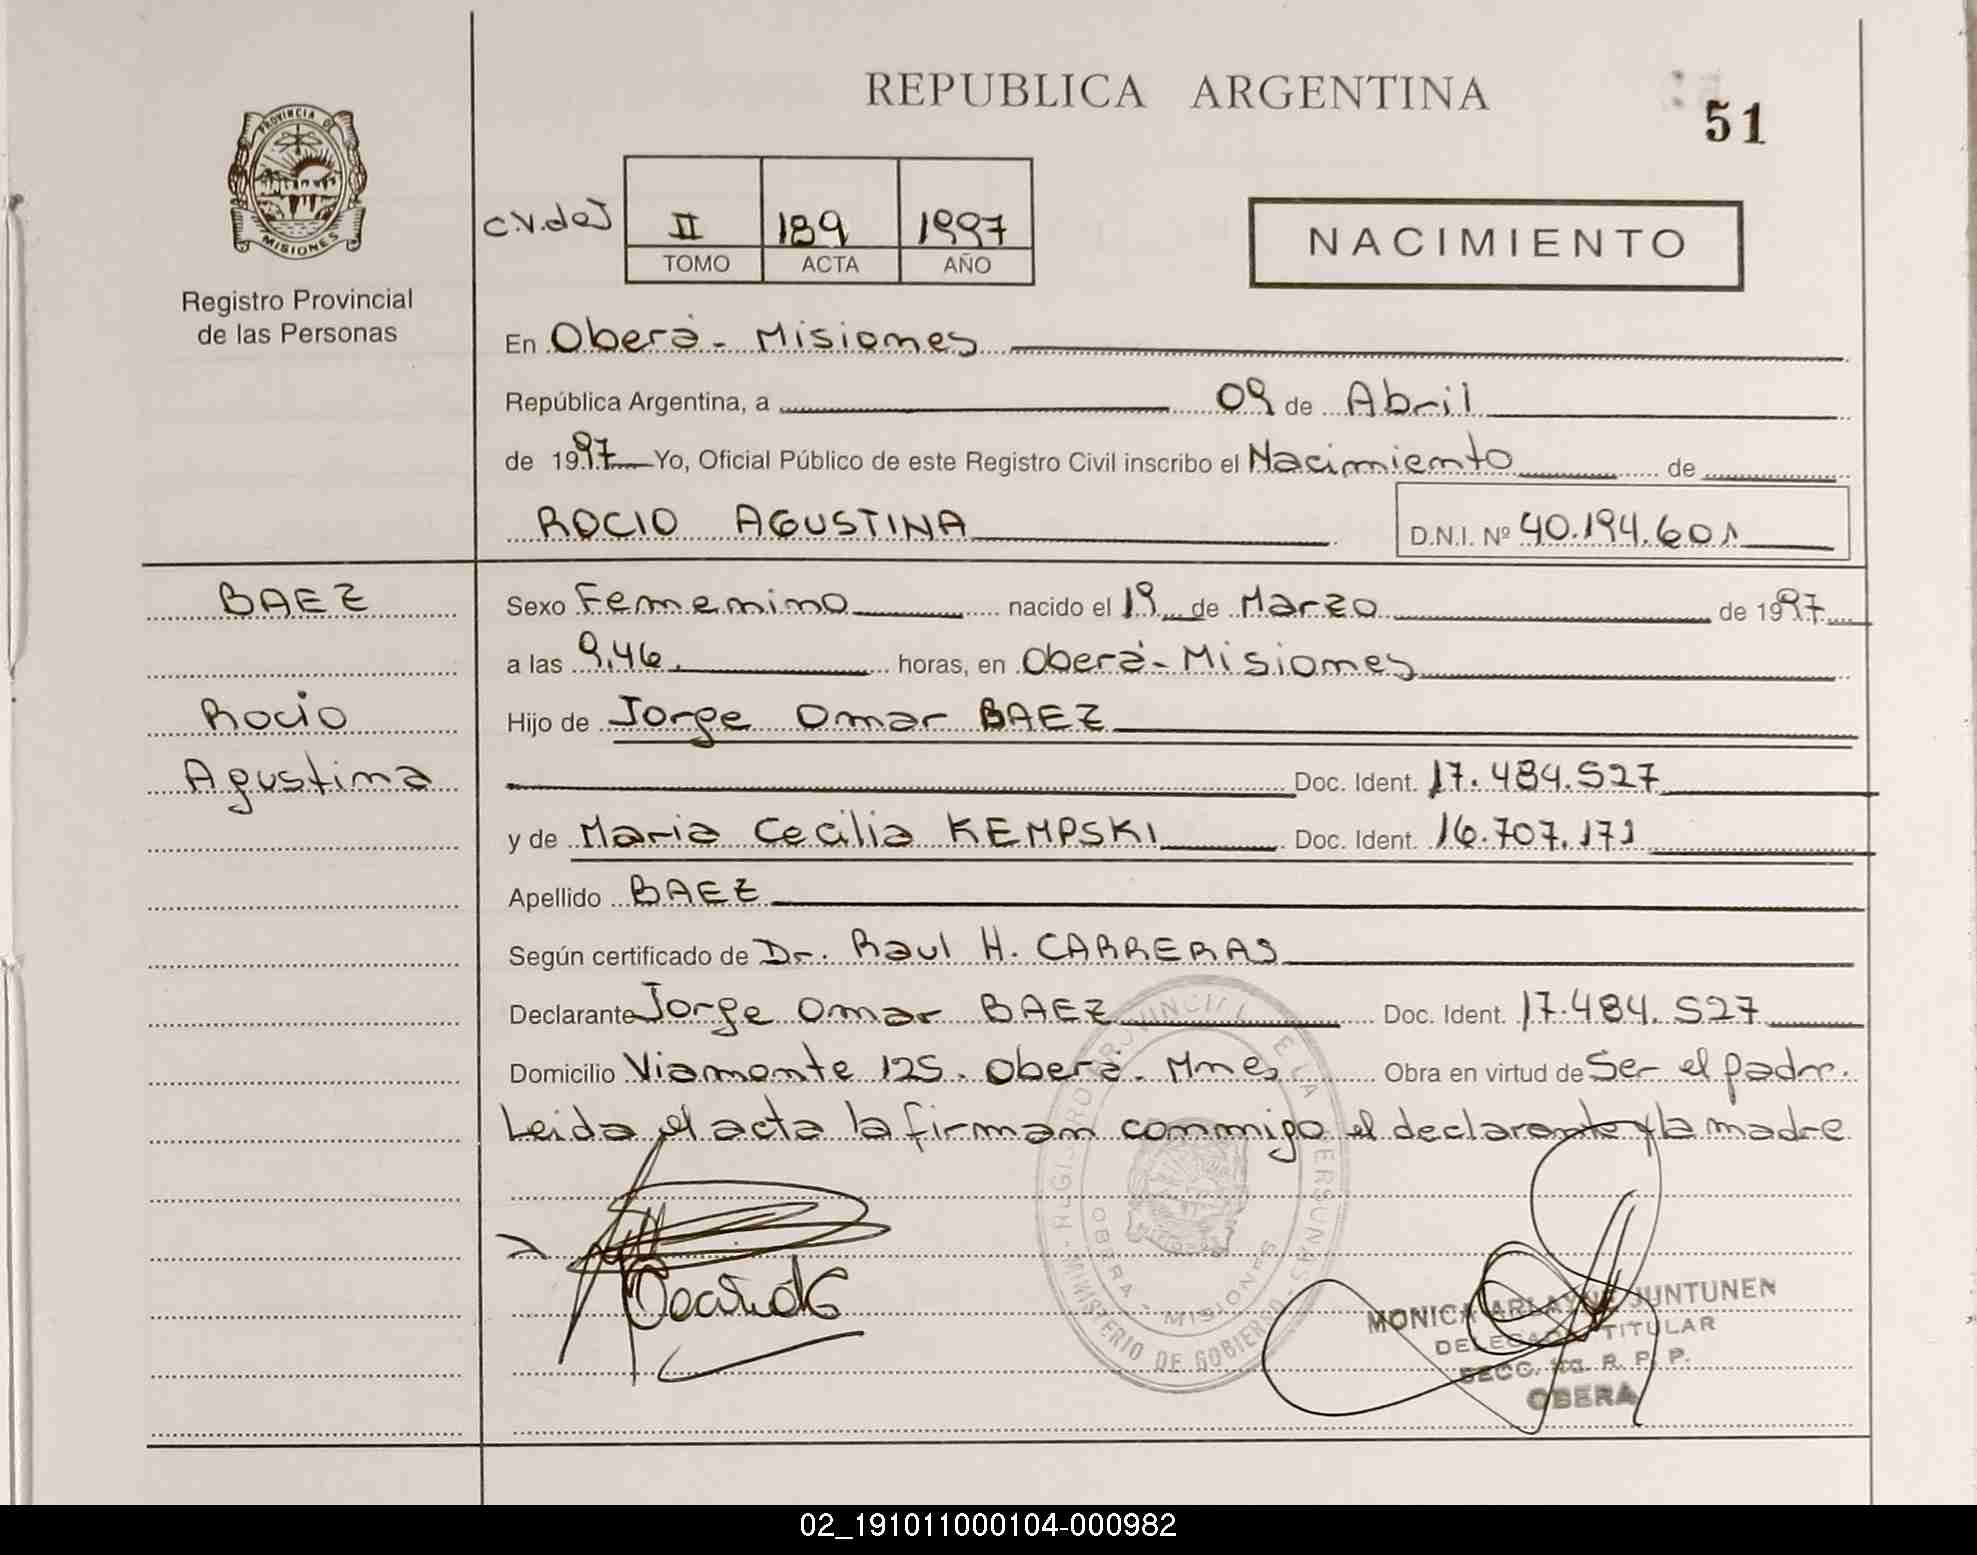 REPUBLICA ARGENTINA
51
PROVINCIA DE
MISIONES
Registro Provincial
de las Personas
C.V.deJ
II 189 1997
TOMO ACTA AÑO
NACIMIENTO
En Oberá - Misiones
República Argentina, a 09 de Abril
de 1997 Yo, Oficial Público de este Registro Civil inscribo el Nacimiento de
ROCIO AGUSTINA D.N.I. Nº 40.194.601
BAEZ
Rocio
Agustina
Sexo Femenino nacido el 19 de Marzo de 1997
a las 9,46. horas, en Oberá - Misiones
Hijo de Jorge Omar BAEZ
Doc. Ident. 17.484.527
y de Maria Cecilia KEMPSKI Doc. Ident. 16.707.171
Apellido BAEZ
Según certificado de Dr. Raul H. CARRERAS
Declarante Jorge Omar BAEZ Doc. Ident. 17.484.527
Domicilio Viamonte 125. Oberá. Mnes Obra en virtud de Ser el padre.
Leida el acta la firman conmigo el declarante y la madre
MINISTERIO DE GOBIERNO
OBERA - MISIONES
MONICA ARLAYNE JUNTUNEN
DELEGADA TITULAR
SECC. R. P. P.
OBERA
02_191011000104-000982